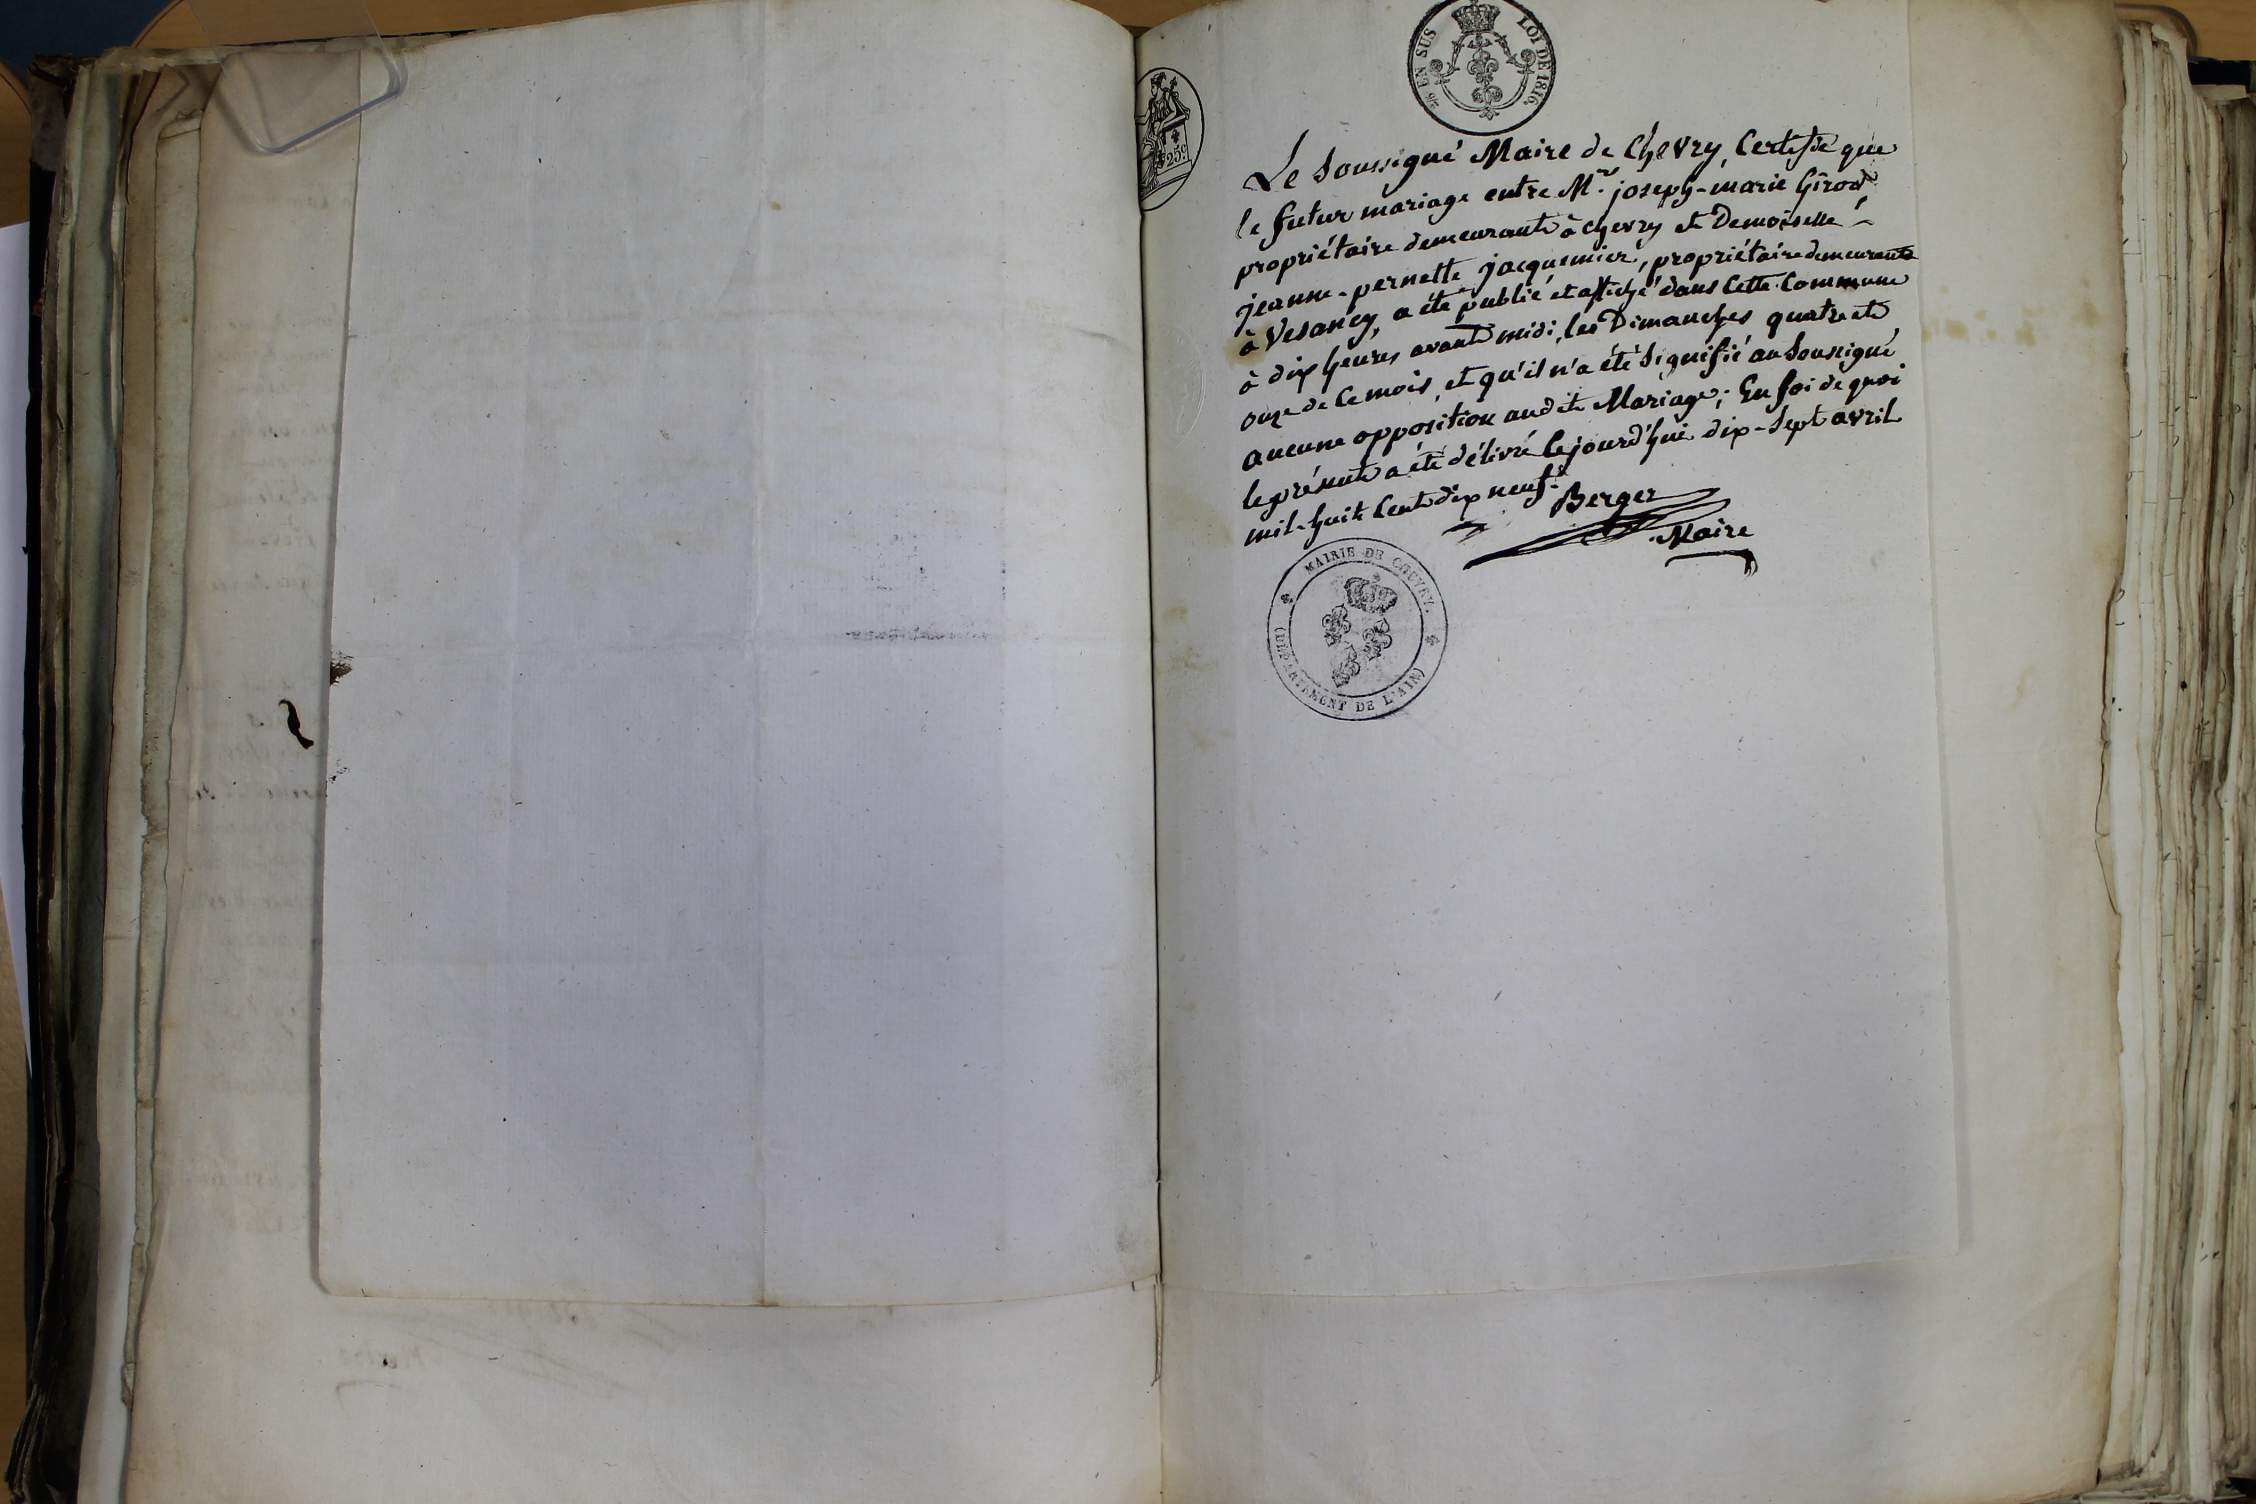 LOI DE 1816.
EN SUS
25c
Le Soussigné Maire de Chevry, Certifie que
le futur mariage entre Mr. joseph-marie Girod,
propriétaire demeurant à chevry et Demoiselle
jeanne-pernette jacquemier, propriétaire demeurant
à Vesancy, a été publié et affiché dans cette Commune
à dix heures avant midi, les Dimanches quatre et
onze de ce mois, et qu'il n'a été signifié au Soussigné
aucune opposition audit Mariage; En foi de quoi
le présent a été délivré cejourd'hui dix-Sept avril
mil-huit Cent dix neuf.
Berger
Maire
MAIRIE DE CHEVRY.
(DÉPARTEMENT DE L'AIN)